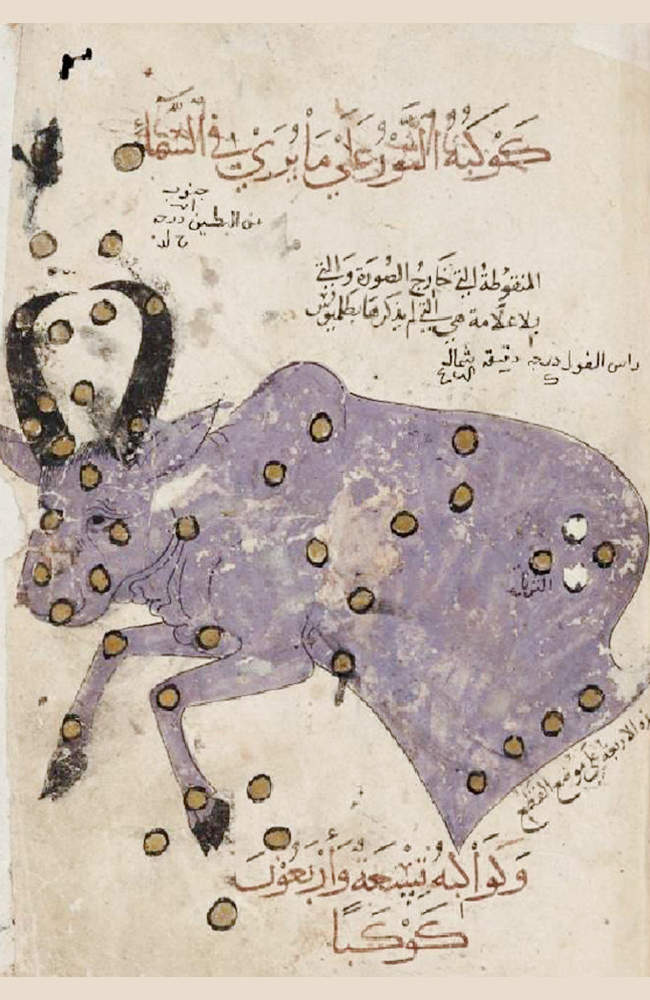 كَوْكَبَةُ الثَّوْرُ عَلَى مَا يُرَىْ فى السَّمَاءِ
جنوب
من البطين درجه
المنقوطة التى خَارِجُ الصُورَة وَالتى
بلا علامة هى التى لم يذكرها بطلميوس
راس الغول درجه دقيقه شماله
الثريا
الاربعة على موضع القطع
وَكَوَاكبهُ تِسْعَة وَأَرْبَعُوْنَ
كَوْكَبًا